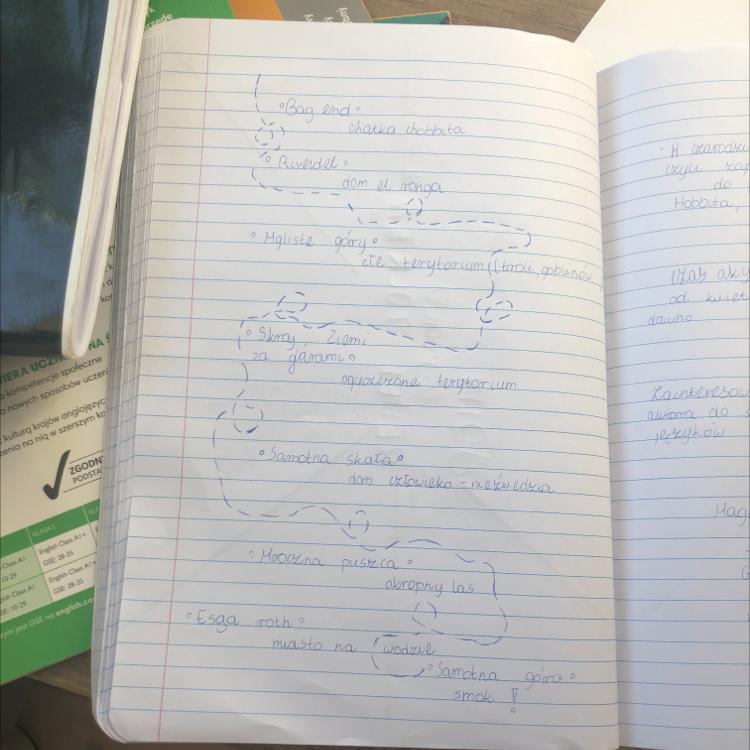 °Bag end°
chatka chobbita
° Rivendel°
dom el ronga
° Mgliste góry°
złe terytorium ((troli, goblinów
° Skraj Ziemi
za górami°
opuszczone terytorium
°Samotna skała°
dom człowieka-niedźwiedzia
° Mroczna puszcza °
okropny las
°Esga roth°
miasto na wodzie
°Samotna góra°
smok !
do
Hobbita,
od kwiet
dawno
Zainteresow
języków
WIERA UCZ
kompetencje społeczne
nowych sposobów uczen
kulturą krajów anglojęzyc
enia na nią w szerszym ko
ZGODN
PODSTA
KLASA 5
English Class A1+
GSE: 28-35
English Class A1+
GSE: 28-35
GSE: 10-29
zym jest GSE na english.co